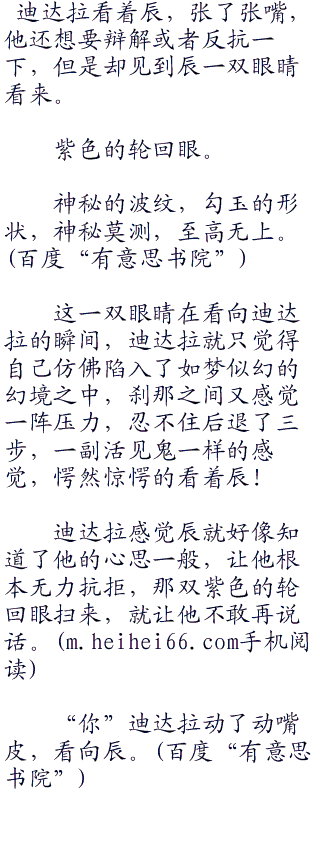 迪达拉看着辰，张了张嘴，
他还想要辩解或者反抗一
下，但是却见到辰一双眼睛
看来。
紫色的轮回眼。
神秘的波纹，勾玉的形
状，神秘莫测，至高无上。
(百度“有意思书院”)
这一双眼睛在看向迪达
拉的瞬间，迪达拉就只觉得
自己仿佛陷入了如梦似幻的
幻境之中，刹那之间又感觉
一阵压力，忍不住后退了三
步，一副活见鬼一样的感
觉，愕然惊愕的看着辰！
迪达拉感觉辰就好像知
道了他的心思一般，让他根
本无力抗拒，那双紫色的轮
回眼扫来，就让他不敢再说
话。(m.heihei66.com手机阅
读)
“你”迪达拉动了动嘴
皮，看向辰。(百度“有意思
书院”)